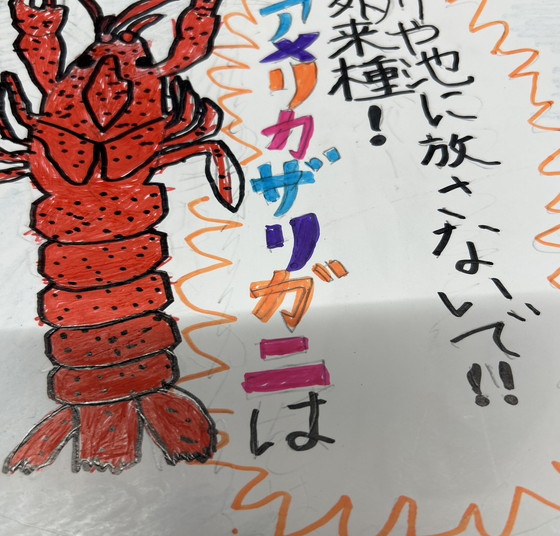 アメリカザリガニは
外来種!
川や池に放さないで!!